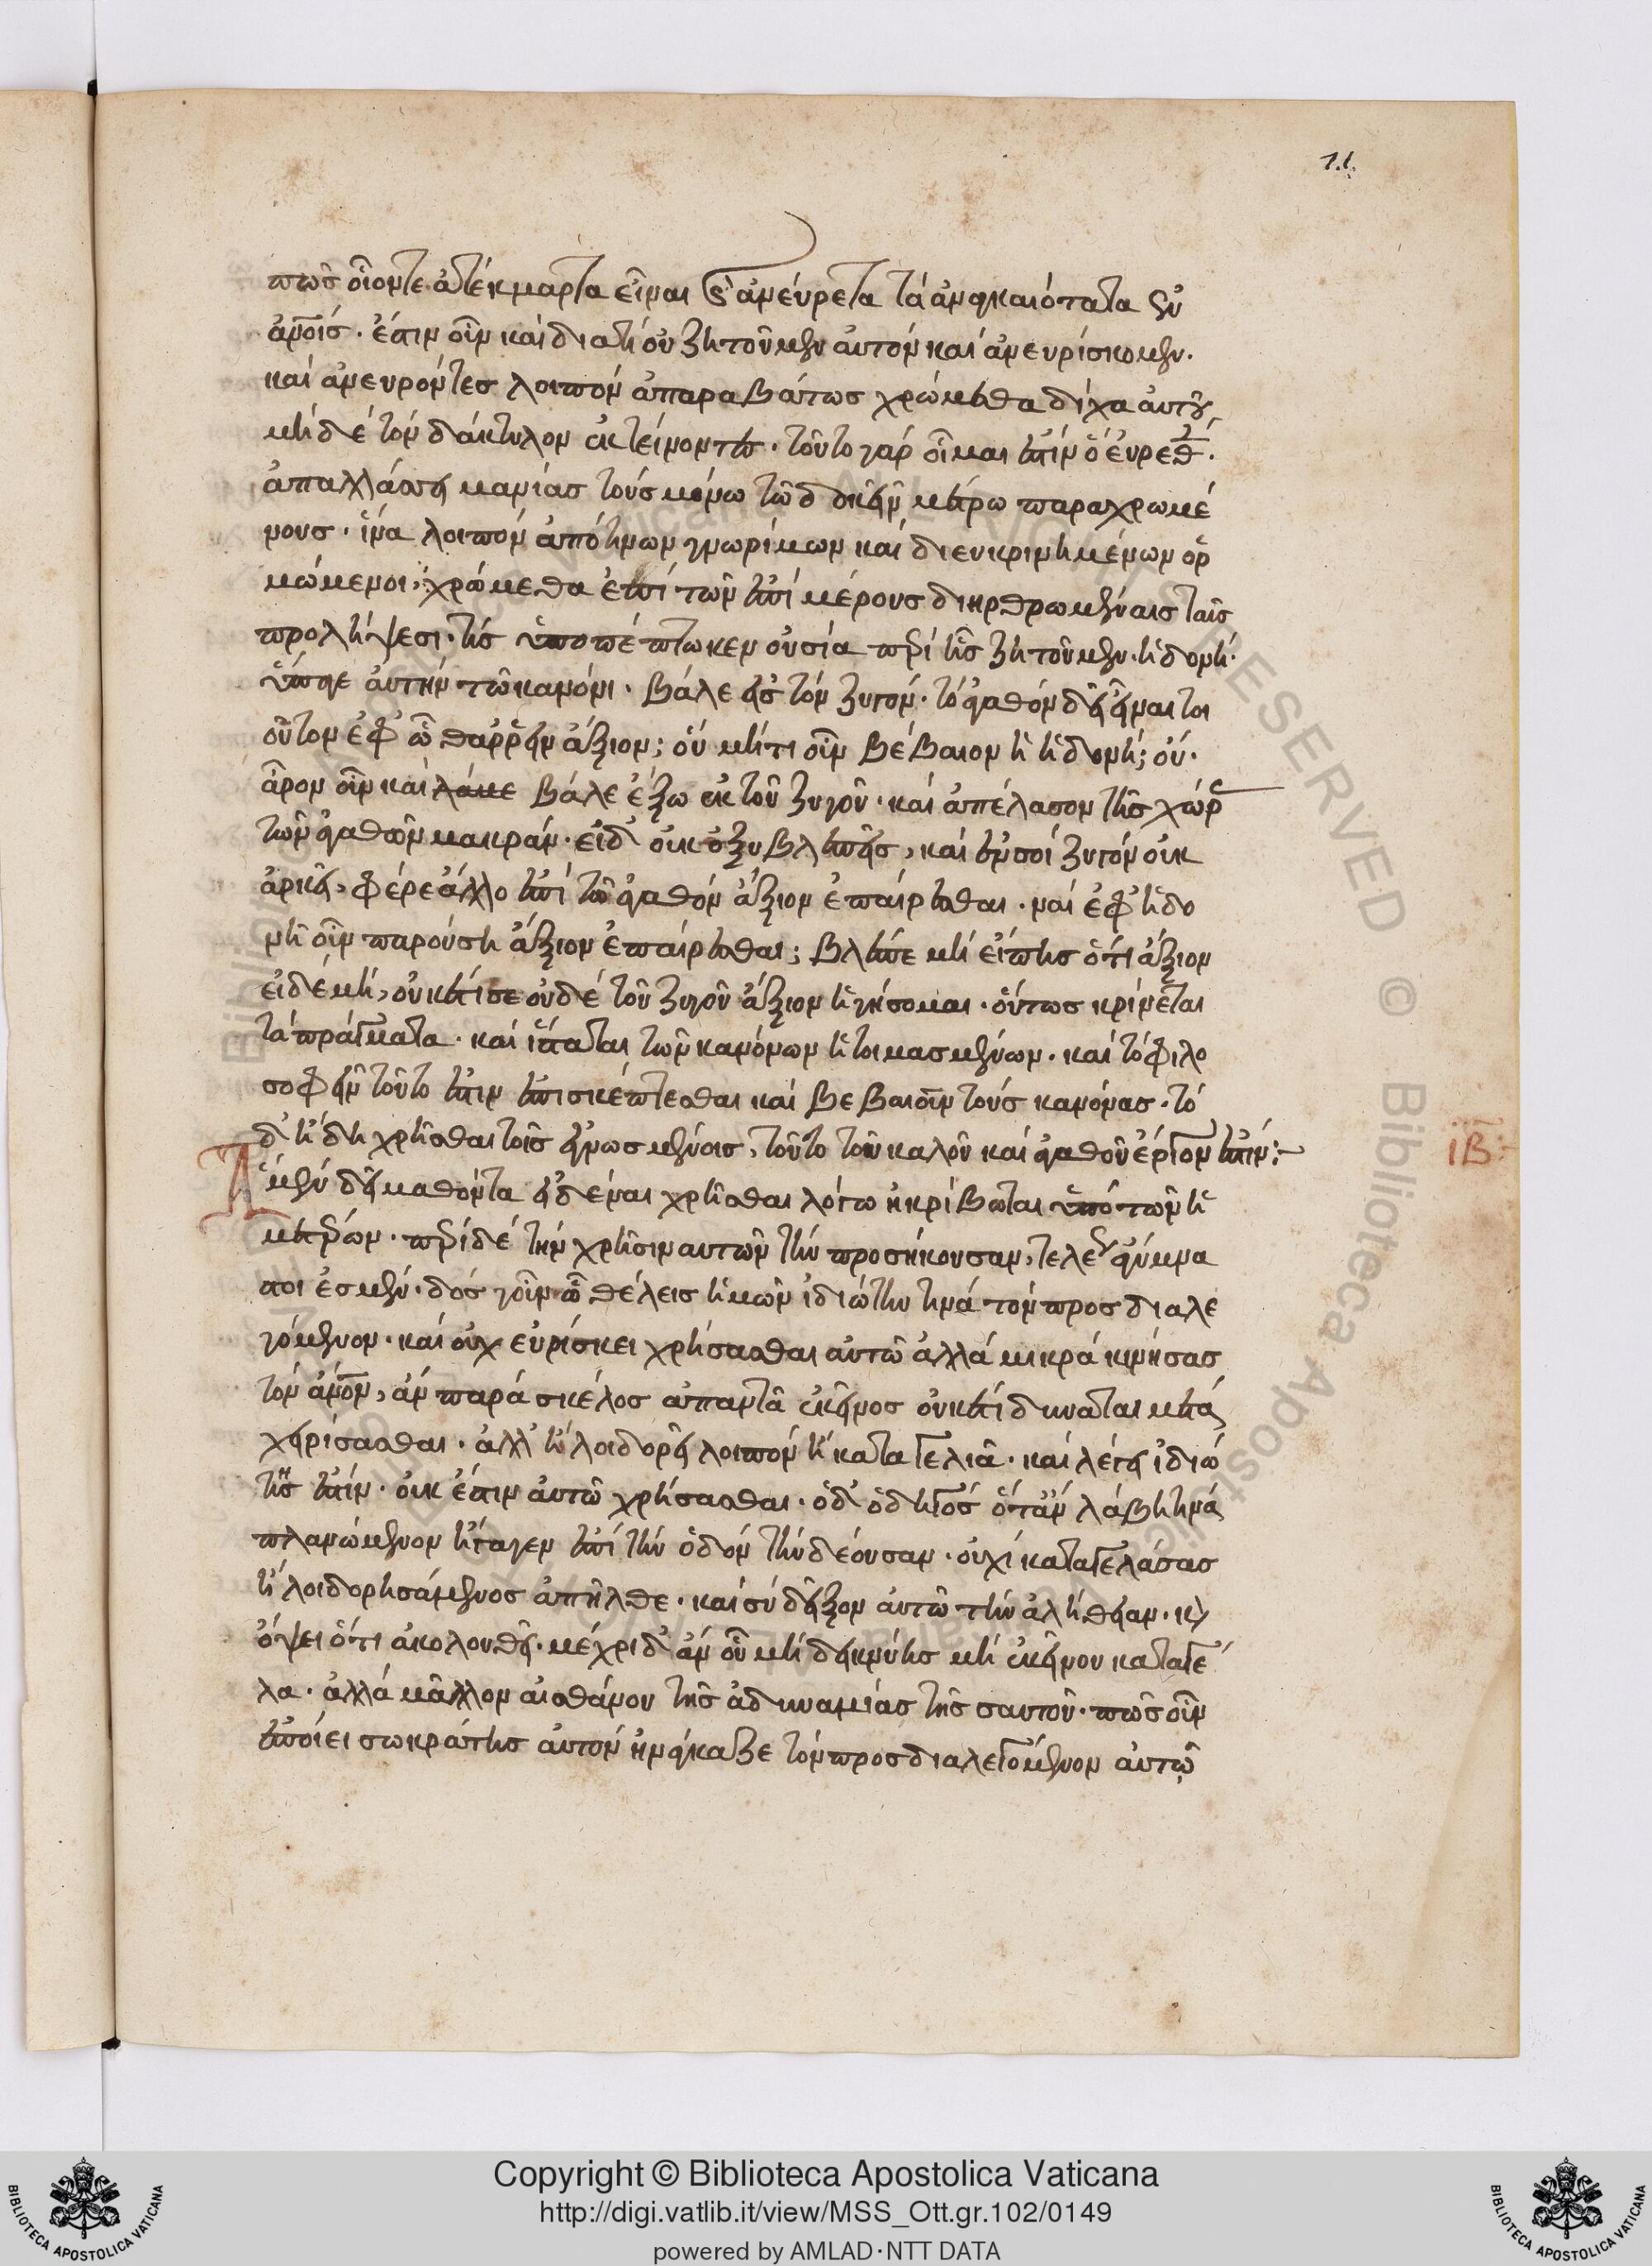 71.
πῶς οἷόντε ἀτέκμαρτα εἶναι καὶ ἀνεύρετα τὰ ἀναγκαιότατα ἐν
ἀνοις. ἔστιν οὖν καὶ διατί οὐ ζητοῦμεν αὐτὸν καὶ ἀνευρίσκομεν.
καὶ ἀνευρόντες λοιπὸν ἀπαραβάτως χρώμεθα δίχα αὐτοῦ
μὴ δὲ τὸν δάκτυλον ἐκτείνοντες. τοῦτο γὰρ οἶμαι ἐστὶν ὃ εὑρεθὲν.
ἀπαλλάσσει μανίας τοὺς μόνω τῶ δοκεῖν μέτρω παραχρωμέ
νους. ἵνα λοιπὸν ἀπό τινων γνωρίμων καὶ διευκρινημένων ὁρ
μώμενοι, χρώμεθα ἐπὶ τῶν ἐπὶ μέρους διηρθρωμέναις ταῖς
προλήψεσι. τίς ὑποπέπτωκεν οὐσία περὶ ἧς ζητοῦμεν. ἡδονή.
ὕπαγε αὐτὴν τῶ κανόνι. βάλε εἰς τὸν ζυγόν. τὸ ἀγαθὸν δεῖ εἶναι τοι
οῦτον ἐφ' ᾧ θαρρεῖν ἄξιον; οὐ μήτι οὖν βέβαιον ἡ ἡδονή; οὐ.
ἆρον οὖν καὶ λάκε βάλε ἔξω ἐκ τοῦ ζυγοῦ. καὶ ἀπέλασον τῆς χώρ
τῶν ἀγαθῶν μακράν. εἰ δ' οὐκ ὀξυβλεπεῖς, καὶ ἕν σοι ζυγὸν οὐκ
ἀρκεῖ, φέρε ἄλλο ἐπὶ τῶ ἀγαθὸν ἄξιον ἐπαίρεσθαι. ναὶ ἐφ' ἡδο
νῆ οὖν παρούση ἄξιον ἐπαίρεσθαι; βλέπε μὴ εἴπης ὅτι ἄξιον
εἰ δὲ μὴ, οὐκέτι σε οὐδὲ τοῦ ζυγοῦ ἄξιον ἡγήσομαι. οὕτως κρίνεται
τὰ πράγματα. καὶ ἵσταται τῶν κανόνων ἡτοιμασμένων. καὶ τὸ φιλο
σοφεῖν τοῦτο ἐστιν ἐπισκέπτεσθαι καὶ βεβαιοῦν τοὺς κανόνας. τὸ
δ' ἤδη χρῆσθαι τοῖς ἐγνωσμένοις, τοῦτο τοῦ καλοῦ καὶ ἀγαθοῦ ἔργον ἐστίν:
ιβ:
Ἃ μὲν δεῖ μαθόντα εἰδέναι χρῆσθαι λόγω ἠκρίβωται ὑπὸ τῶν ἡ
μετέρων. περὶ δὲ τὴν χρῆσιν αυτῶν τὴν προσήκουσαν, τελέως ἀγύμνα
στοι ἐσμέν. δὸς γοῦν ᾧ θέλεις ἡμῶν ἰδιώτην τινὰ τὸν προσδιαλε
γόμενον. καὶ οὐχ εὑρίσκει χρήσασθαι αὐτῶ ἀλλὰ μικρὰ κινήσας
τὸν ἀνον, ἂν παρὰ σκέλος ἀπαντᾶ ἐκεῖνος οὐκέτι δύναται μετα
χειρίσασθαι. ἀλλ' ἢ λοιδορεῖ λοιπὸν ἢ καταγελᾶ. καὶ λέγει ἰδιώ
της ἐστίν. οὐκ ἔστιν αὐτῶ χρήσασθαι. ὁ δ' ὁδηγὸς ὅταν λάβη τινὰ
πλανώμενον ἤγαγεν ἐπὶ τὴν ὁδὸν τὴν δέουσαν. οὐχὶ καταγελάσας
ἢ λοιδορησάμενος ἀπῆλθε. καὶ σὺ δεῖξον αὐτῶ τὴν ἀλήθειαν. καὶ
ὄψει ὅτι ἀκολουθεῖ. μέχρι δ' ἂν οὗ μὴ δεικνύης μὴ ἐκείνου καταγέ
λα. ἀλλὰ μᾶλλον αἰσθάνου τῆς ἀδυναμίας τῆς σαυτοῦ. πῶς οὖν
ἐποίει σωκράτης αὐτὸν ἠνάγκαζε τὸν προσδιαλεγόμενον αὐτῷ
Copyright © Biblioteca Apostolica Vaticana
http://digi.vatlib.it/view/MSS_Ott.gr.102/0149
powered by AMLAD·NTT DATA